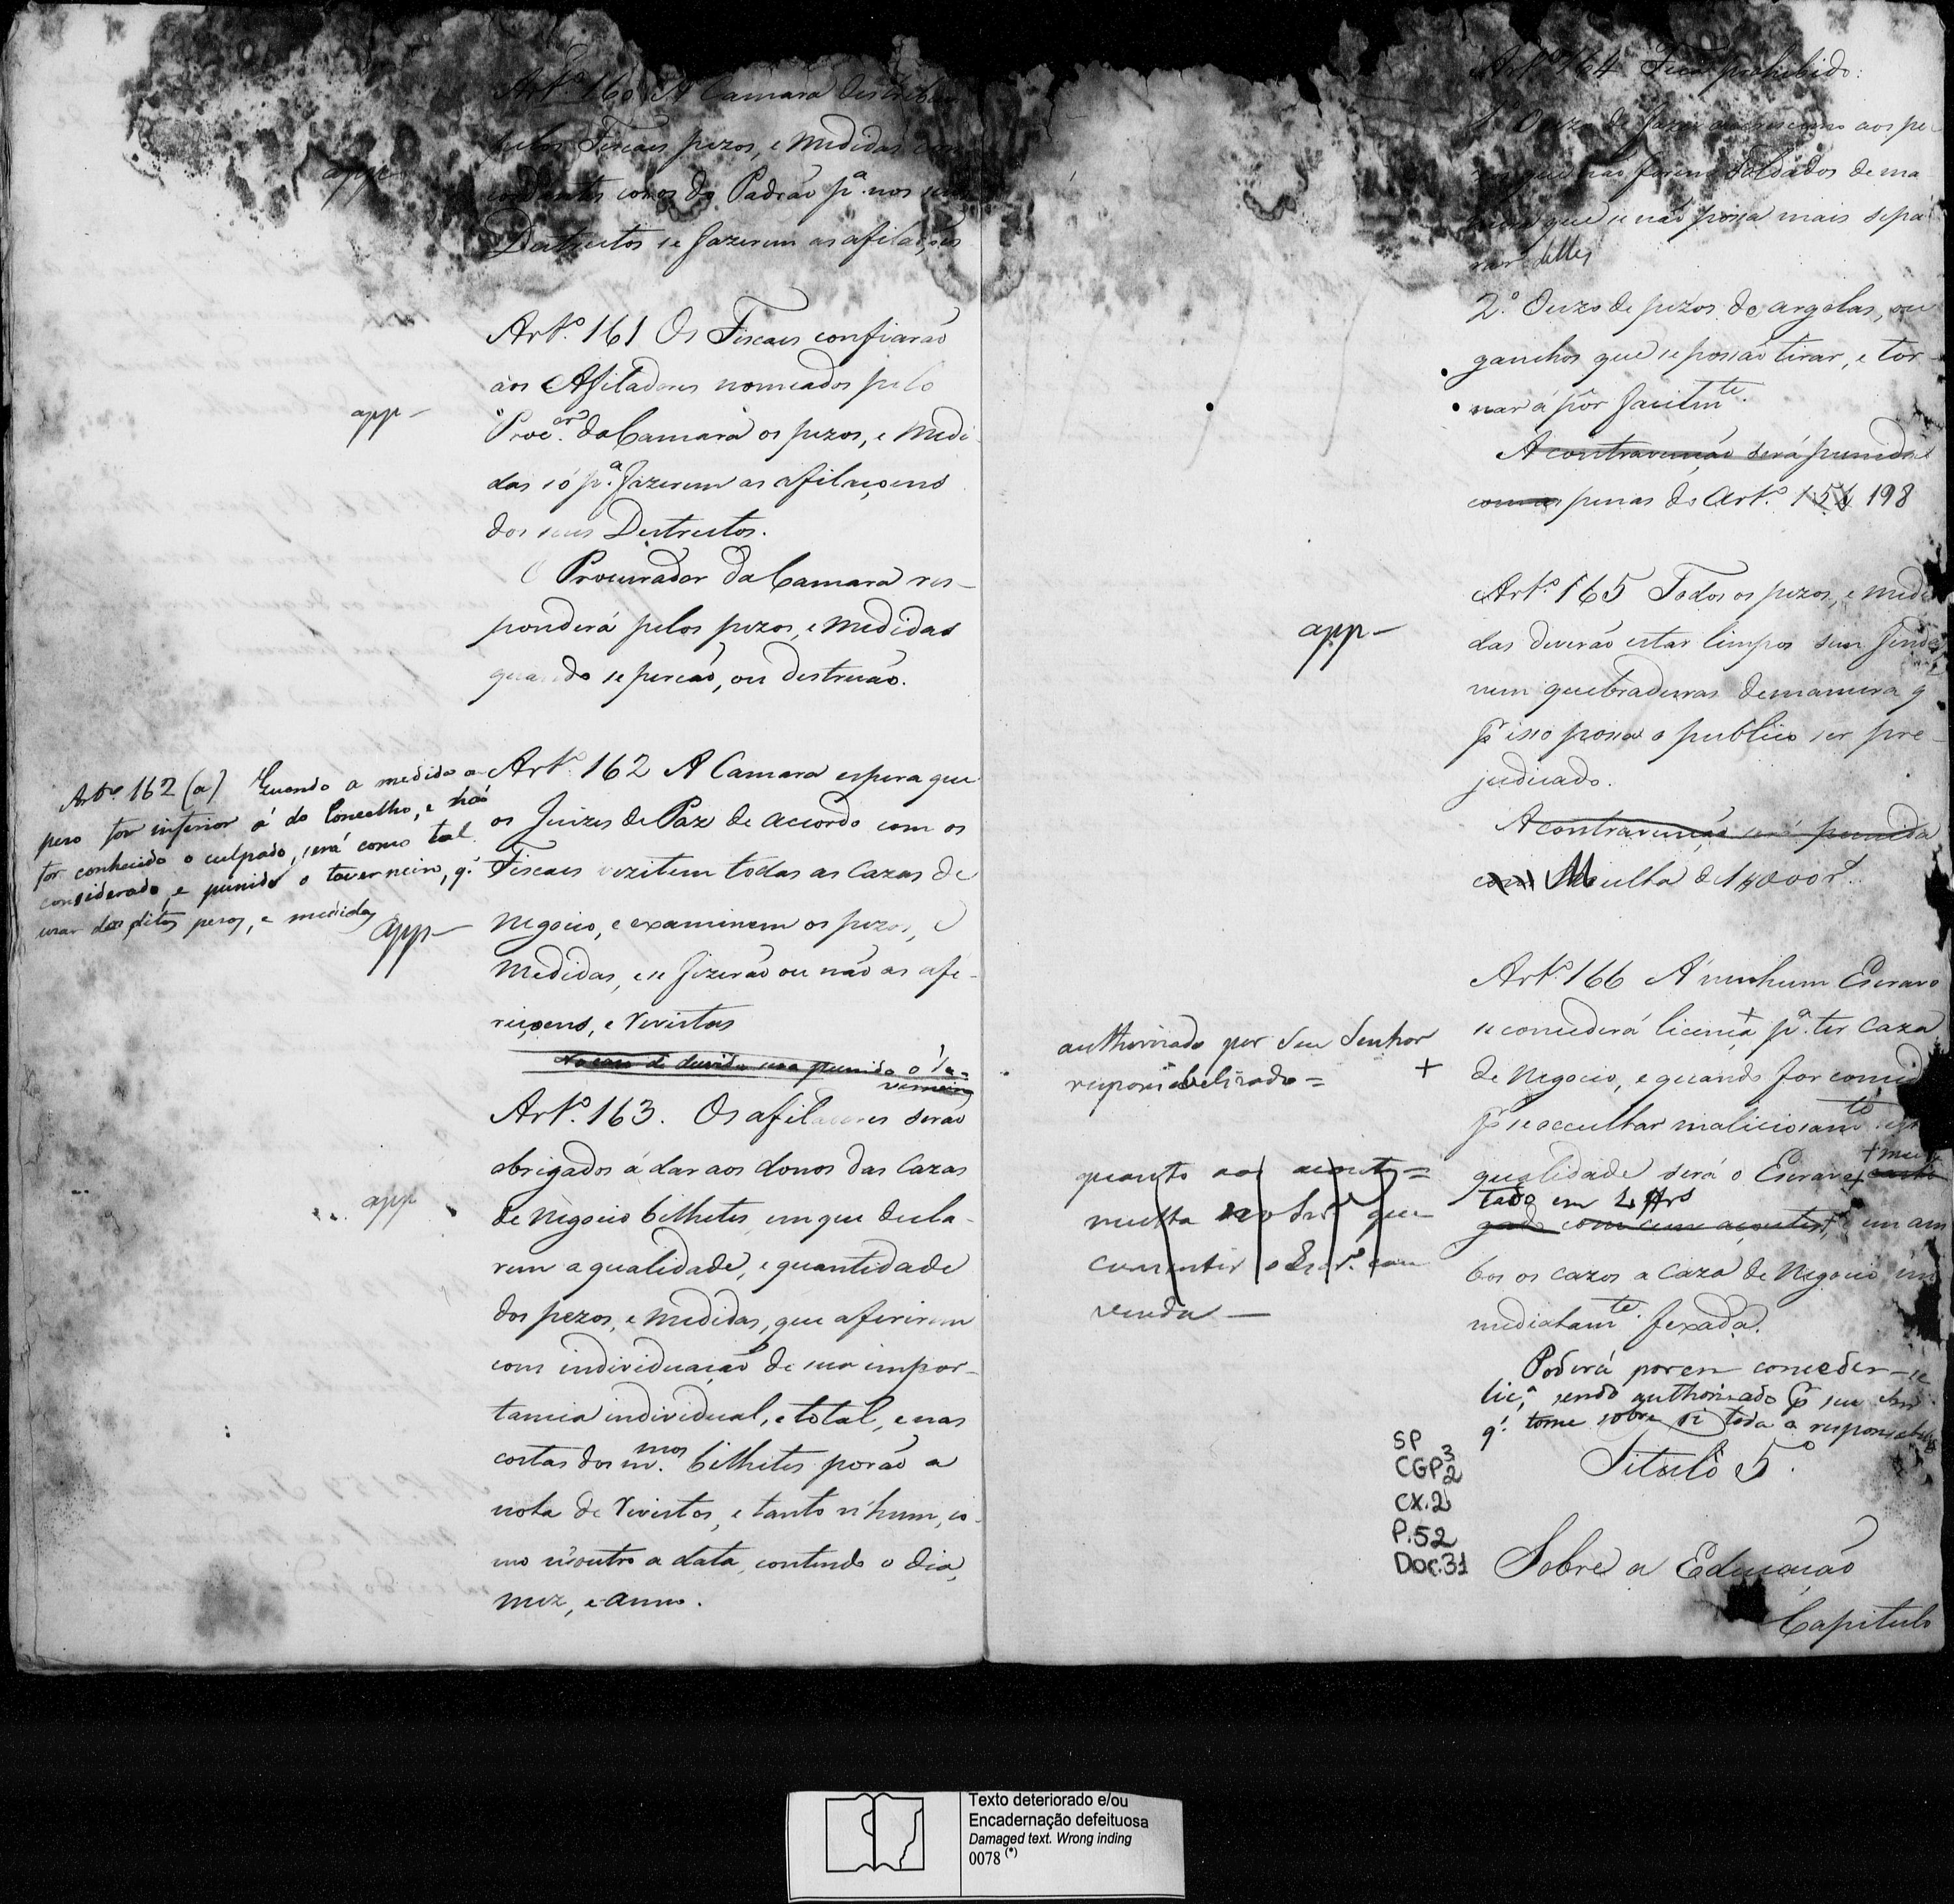 Artº. 160 A Camara destribui
pelos Fiscaes pezos, e Medidas con
cordantes com os do Padrão pª. nos seus
Destrictos se fazerem as afilaçoes
app
Artº. 161 Os Fiscaes confiarão
aos Afiladores nomeados pelo
app-
Procor. da Camara os pezos, e Medi-
das só pª. fazerem as afilaçoens
dos seus Destrictos.
O Procurador da Camara res-
ponderá pelos pezos, e Medidas
quando se percão, ou destruão.
Artº. 162 A Camara espera que
os Juizes de Paz de accordo com os
Fiscaes vezitem todas as Cazas de
Negocio, e examinem os pezos, e
Medidas, e se fizerão ou não as afe-
riçoens, e Revistas
No caso de duvida sera punido o Ta=
verneiro
Arto 162 (a) Quando a medida o
pezo for inferior á do Concelho, e não
for conhecido o culpado, será como tal
considerado, e punido o taverneiro, q.
usar dos ditos pezos, e medidas
app-
Artº. 163. Os afiladores serão
obrigados á dar aos donos das Cazas
app
de Negocio bilhetes, em que decla-
rem a qualidade, e quantidade
dos pezos, e Medidas, que aferirem
com individuação de sua impor-
tancia individual, e total, e nas
costas dos m.mos bilhetes porão a
nota de Revistos, e tanto n'hum, co-
mo n'outro a data, contendo o dia,
mez, e anno.
Artº. 164 Fica prohibido:
1º O uzo de fazer accrescimo aos pe-
zos que não forem soldados de ma
neira que se não possa mais sepa-
rar delles
2º. O uzo de pezos de argolas, ou
ganchos que se possão tirar, e tor-
nar á pôr facilmte.
A contravenção será punida
com as penas do Artº. 156 198
Artº. 165 Todos os pezos, e medi
app-
das deverão estar limpos sem fendas
nem quebraduras de maneira q
pr isso possa o publico ser pre-
judicado.
A contravenção será punida
com Multa de 1#000 r.
Artº. 166 A' nenhum Escravo
se concederá licença + pª. ter Caza
de Negocio, e quando for concedida
pr se occultar maliciosamte. esta
qualidade será o Escravo + casti
+ mul
tado em 2 #rs
gado com cem açoutes, e em am
bos os cazos a Caza de Negocio im
mediatamte. fexada.
authorisado por seu Senhor
responsabelisado = +
quanto aos açoutes =
multa ao Snr. que
consentir o Escr.º com
venda -
Poderá porem conceder-se
licª, sendo authorisado pr seu Snr
q. tome sobre si toda a responsabelid
Titulo 5º.
Sobre a Educação
Capitulo
SP
CGP3
2
CX.2
P.52
Doc.31
Texto deteriorado e/ou
Encadernação defeituosa
Damaged text. Wrong inding
0078 (*)